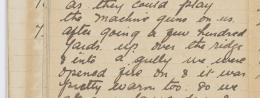 1. as they could play
the machine guns on us.
7. After going a few hundred
yards up over the ridge
& into a gully we were
opened fire on & it was
pretty warm too. So we